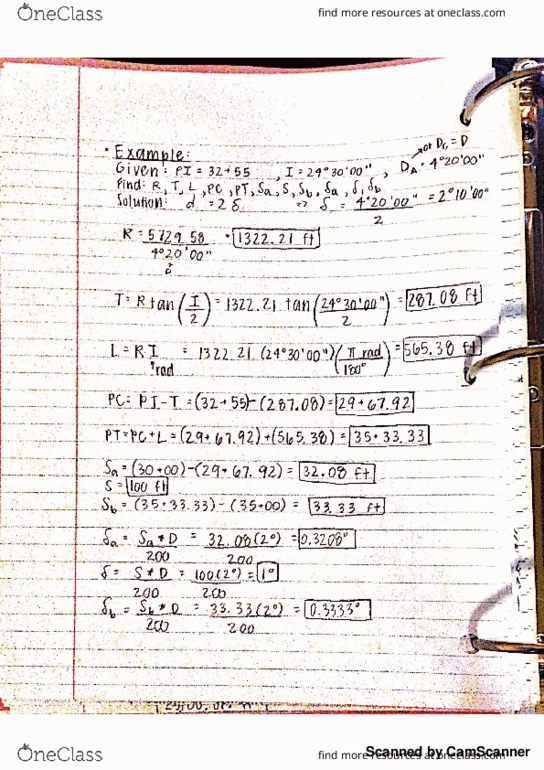 OneClass
find more resources at oneclass.com
• Example:
or Dc = D
Given: PI = 32+55 , I = 24°30'00" , DA = 4°20'00"
Find: R, T, L, PC, PT, Sa, S, Sb, δa, δ, δb
Solution: d = 2δ ⇒ δ = 4°20'00" / 2 = 2°10'00"
R = 5729.58 / 4°20'00" = 1322.21 ft
D
T = R tan (I/2) = 1322.21 tan (24°30'00" / 2) = 287.08 ft
L = R I rad = 1322.21 (24°30'00") (π rad / 180°) = 565.38 ft
PC = PI - T = (32+55) - (287.08) = 29+67.92
PT = PC + L = (29+67.92) + (565.38) = 35+33.33
Sa = (30+00) - (29+67.92) = 32.08 ft
S = 100 ft
Sb = (35+33.33) - (35+00) = 33.33 ft
δa = Sa * D / 200 = 32.08 (2°) / 200 = 0.3208°
δ = S * D / 200 = 100 (2°) / 200 = 1°
δb = Sb * D / 200 = 33.33 (2°) / 200 = 0.3333°
OneClass
find more resources at oneclass.com
Scanned by CamScanner